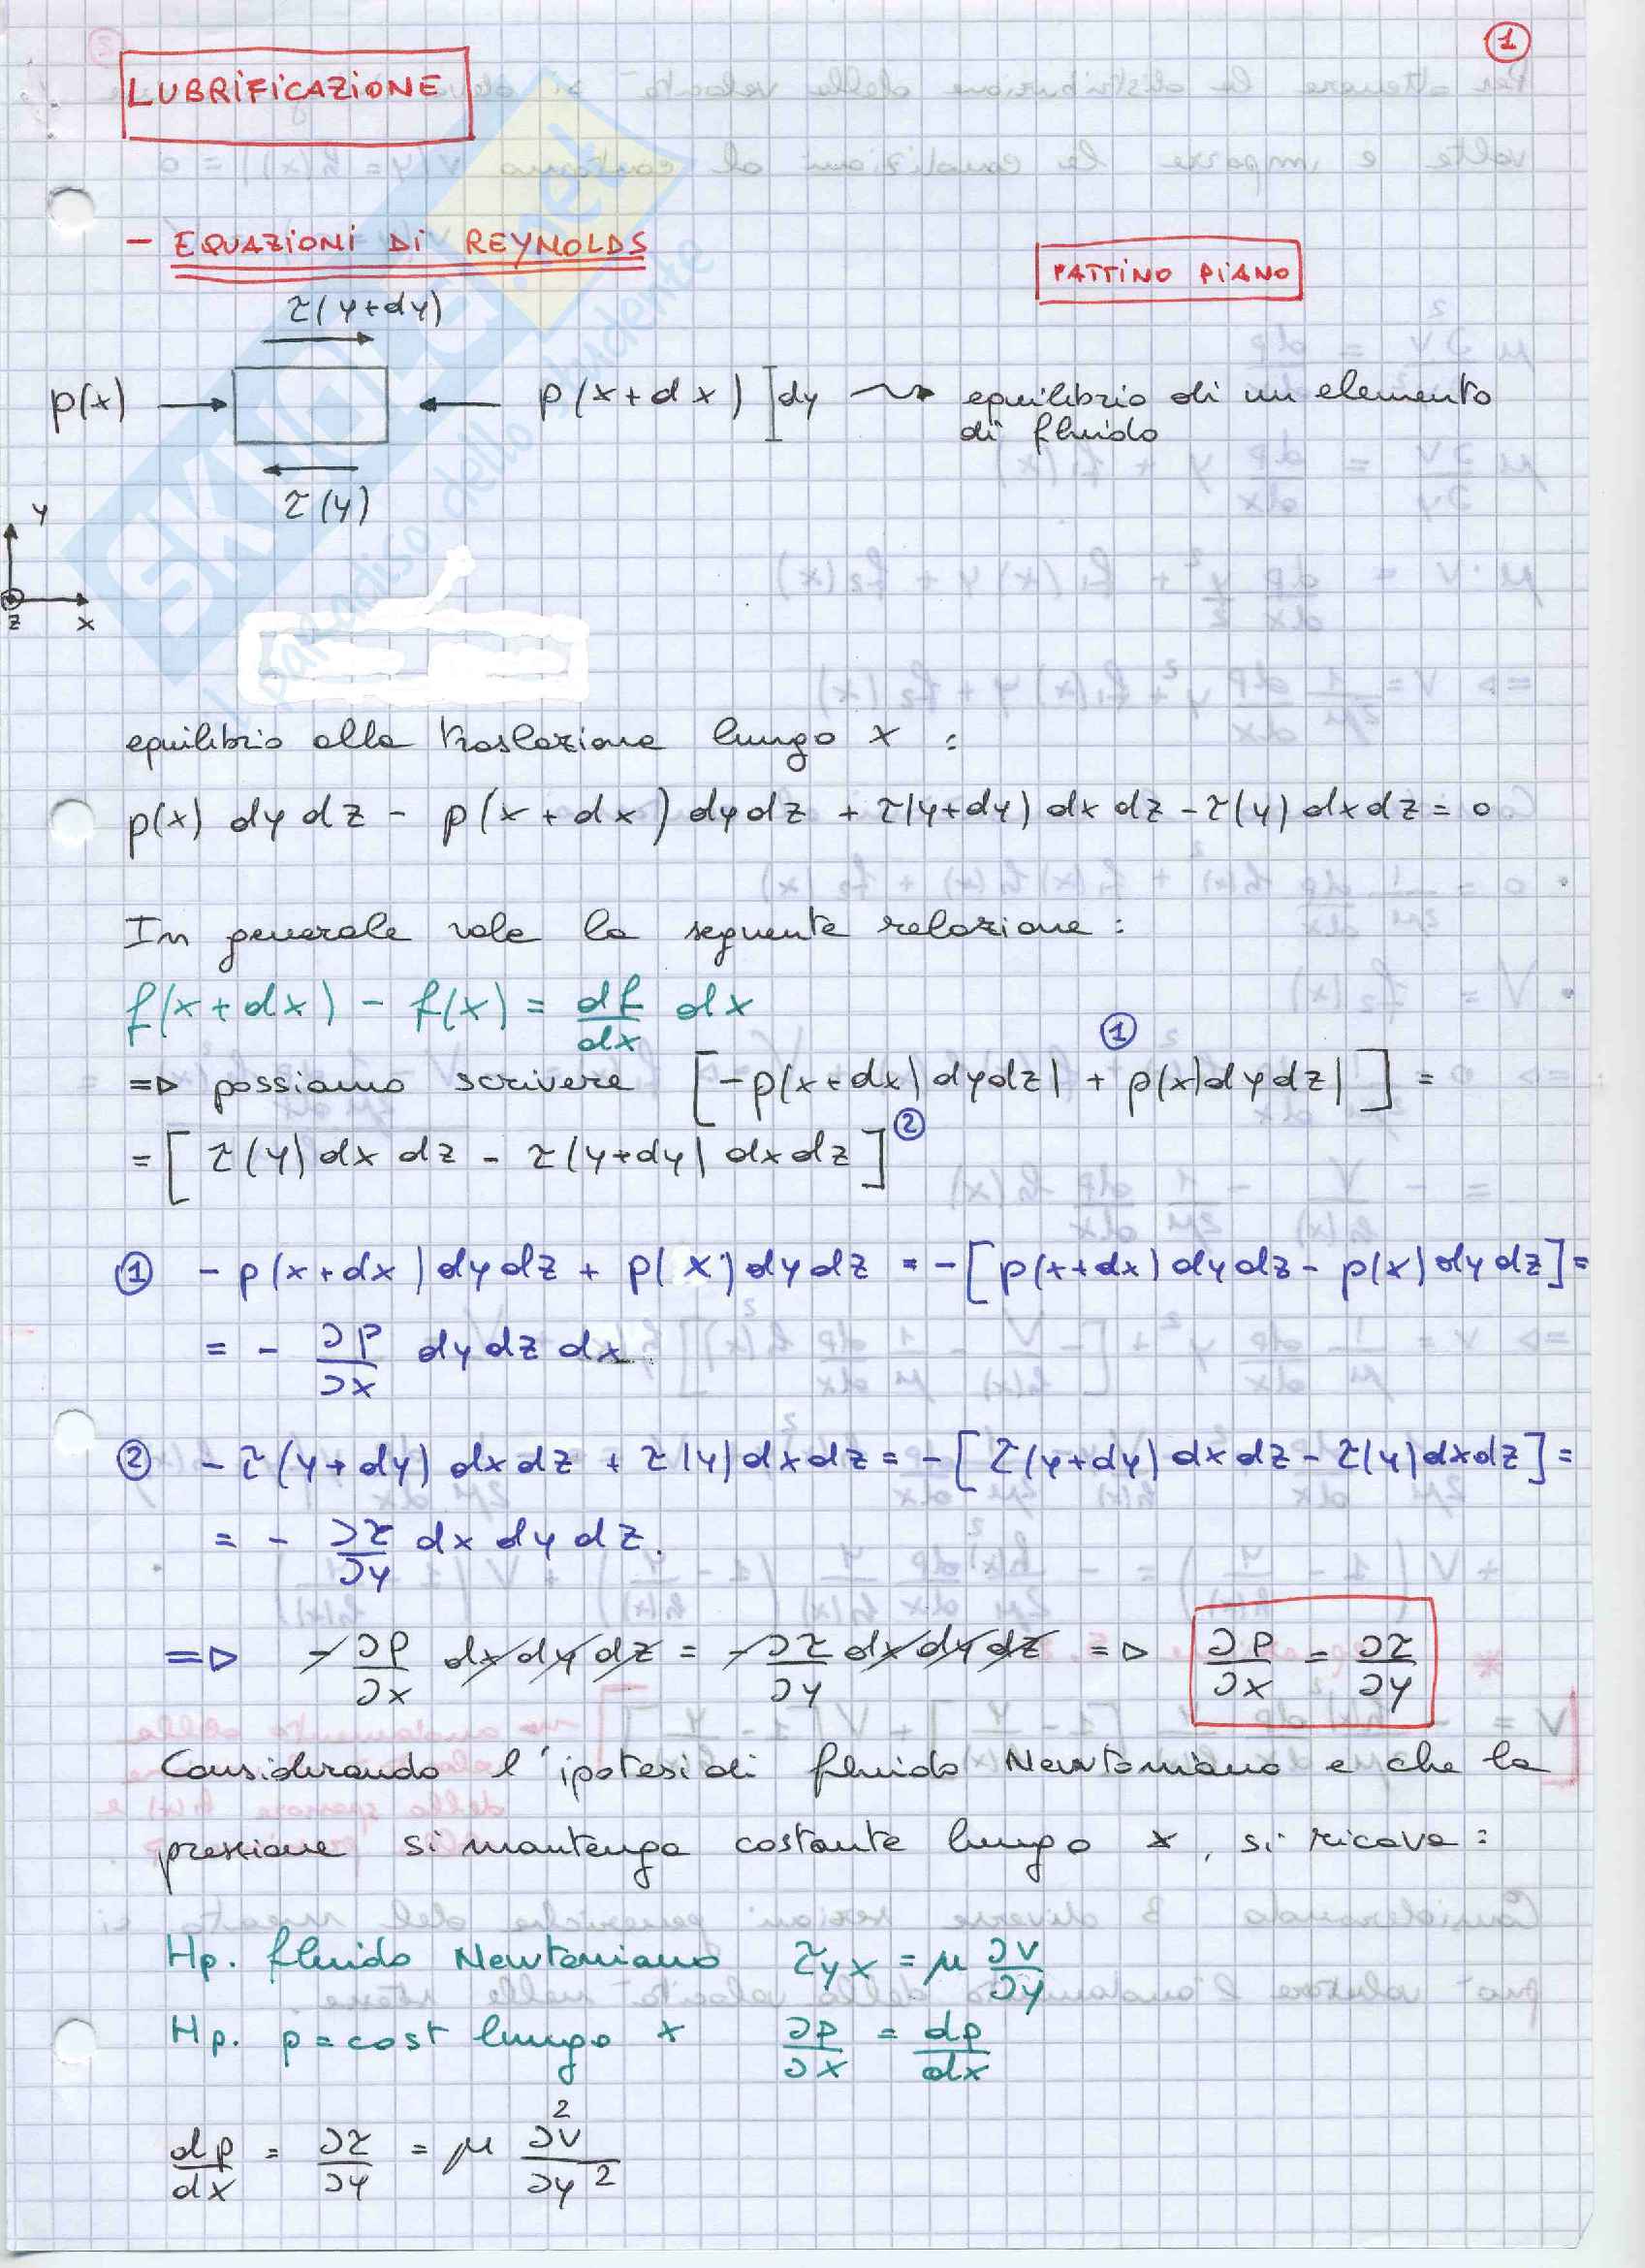 1
LUBRIFICAZIONE
- EQUAZIONI DI REYNOLDS
PATTINO PIANO
τ(y+dy)
p(x) → ← p(x+dx) ] dy ⇝ equilibrio di un elemento
di fluido
τ(y)
y
z x
SKUOLA.net
il paradiso dello studente
equilibrio alla traslazione lungo x :
p(x) dy dz - p(x+dx) dy dz + τ(y+dy) dx dz - τ(y) dx dz = 0
In generale vale la seguente relazione :
f(x+dx) - f(x) = df/dx dx
=> possiamo scrivere [-p(x+dx) dydz) + p(x)dydz)] = ①
= [τ(y) dx dz - τ(y+dy) dxdz] ②
① - p(x+dx) dy dz + p(x) dy dz = -[p(x+dx) dy dz - p(x) dy dz] =
= - ∂p/∂x dy dz dx.
② - τ(y+dy) dx dz + τ(y) dx dz = -[τ(y+dy) dx dz - τ(y) dx dz] =
= - ∂τ/∂y dx dy dz.
=> -∂p/∂x dx dy dz = -∂τ/∂y dx dy dz => ∂p/∂x = ∂τ/∂y
Considerando l'ipotesi di fluido Newtoniano e che la
pressione si mantenga costante lungo x, si ricava :
Hp. fluido Newtoniano τyx = μ ∂v/∂y
Hp. p = cost lungo x ∂p/∂x = dp/dx
dp/dx = ∂τ/∂y = μ ∂²v/∂y²